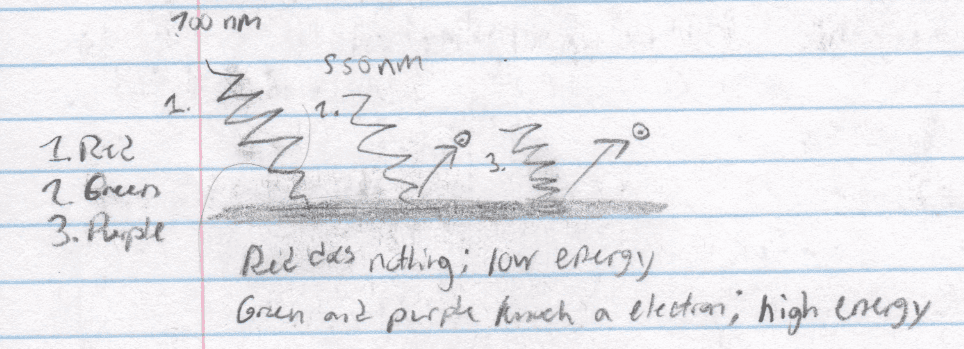 700 nm
550nm
1.
2.
3.
1. Red
2 Green
3. Purple
Red does nothing; low energy
Green and purple knock a electron; high energy